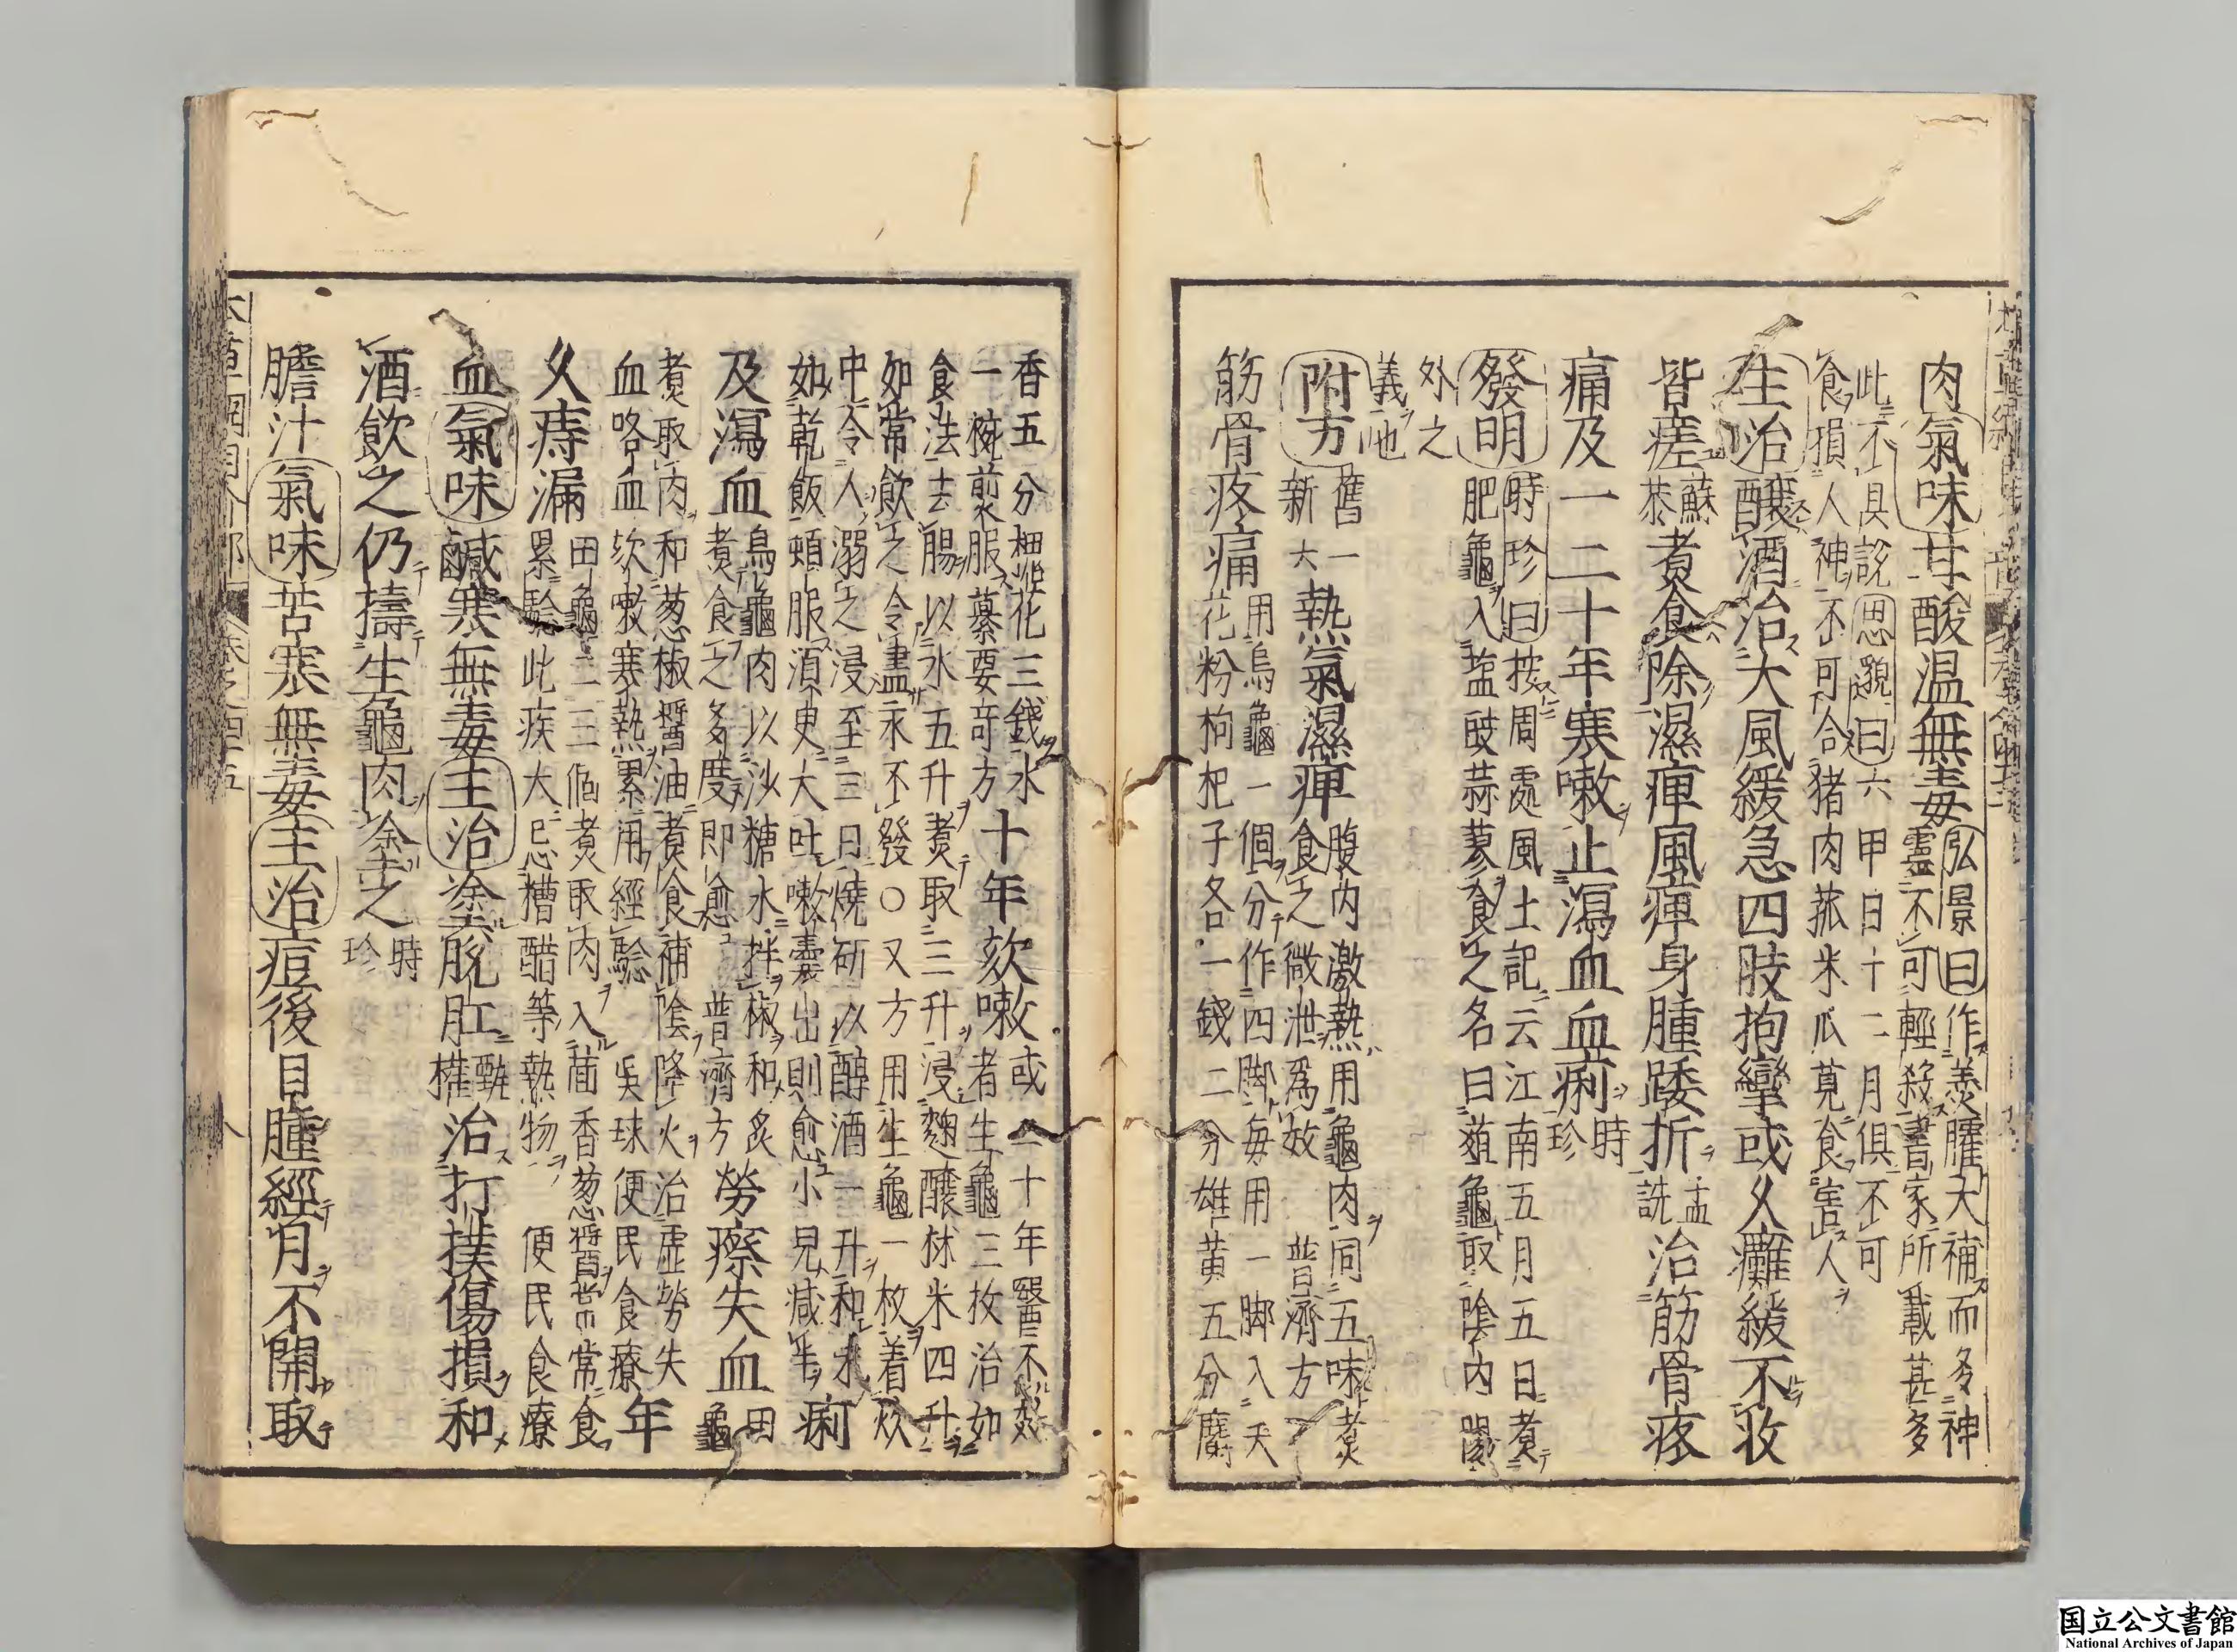 肉氣味甘酸温無毒弘景曰作羮臛大補而多神
靈不可輕殺書家所載甚多
此不具說思邈曰六甲日十二月俱不可
食損人神不可合猪肉菰米瓜莧食害人
生治釀酒治大風緩急四肢拘攣或久癱緩不收
皆瘥蘇恭煮食除濕痺風痺身腫踒折孟詵治筋骨疼
痛及一二十年寒嗽止瀉血血痢時珍
發明時珍曰按周處風土記云江南五月五日煮
肥龜入塩豉蒜蓼食之名曰葅龜取陰内陽
外之
義也
附方舊一新六熱氣濕痺腹内激熱用龜肉同五味煮
食之微泄爲效 普濟方
筋骨疼痛用烏龜一個分作四脚毎用一脚入天
花粉枸杷子各一錢二分雄黄五分麝
香五分槐花三錢水
一椀煎服纂要竒方十年欬嗽或二十年醫不效
者生龜三枚治如
食法去腸以水五升煮取三升浸麴釀秫米四升
如常飲之令盡永不發〇又方用生龜一枚着坎
中令人溺之浸至三日燒研以醇酒一升和末
如乾飯頓服須臾大吐嗽囊出則愈小兒減半痢
及瀉血烏龜肉以沙糖水拌椒和炙
煮食之多度即愈 普濟方勞瘵失血田
龜
煮取肉和葱椒醬油煮食補陰降火治虚勞失
血咯血欬嗽寒熱累用經驗 吳球便民食療年
久痔漏田龜二三個煮取肉入茴香葱醬常常食
累驗此疾大忌糟醋等熱物 便民食療
血氣味鹹寒無毒主治塗脫肛甄權治打撲傷損和
酒飲之仍擣生龜肉塗之時珍
膽汁氣味苦寒無毒主治痘後目腫經月不開取
国立公文書館
National Archives of Japan